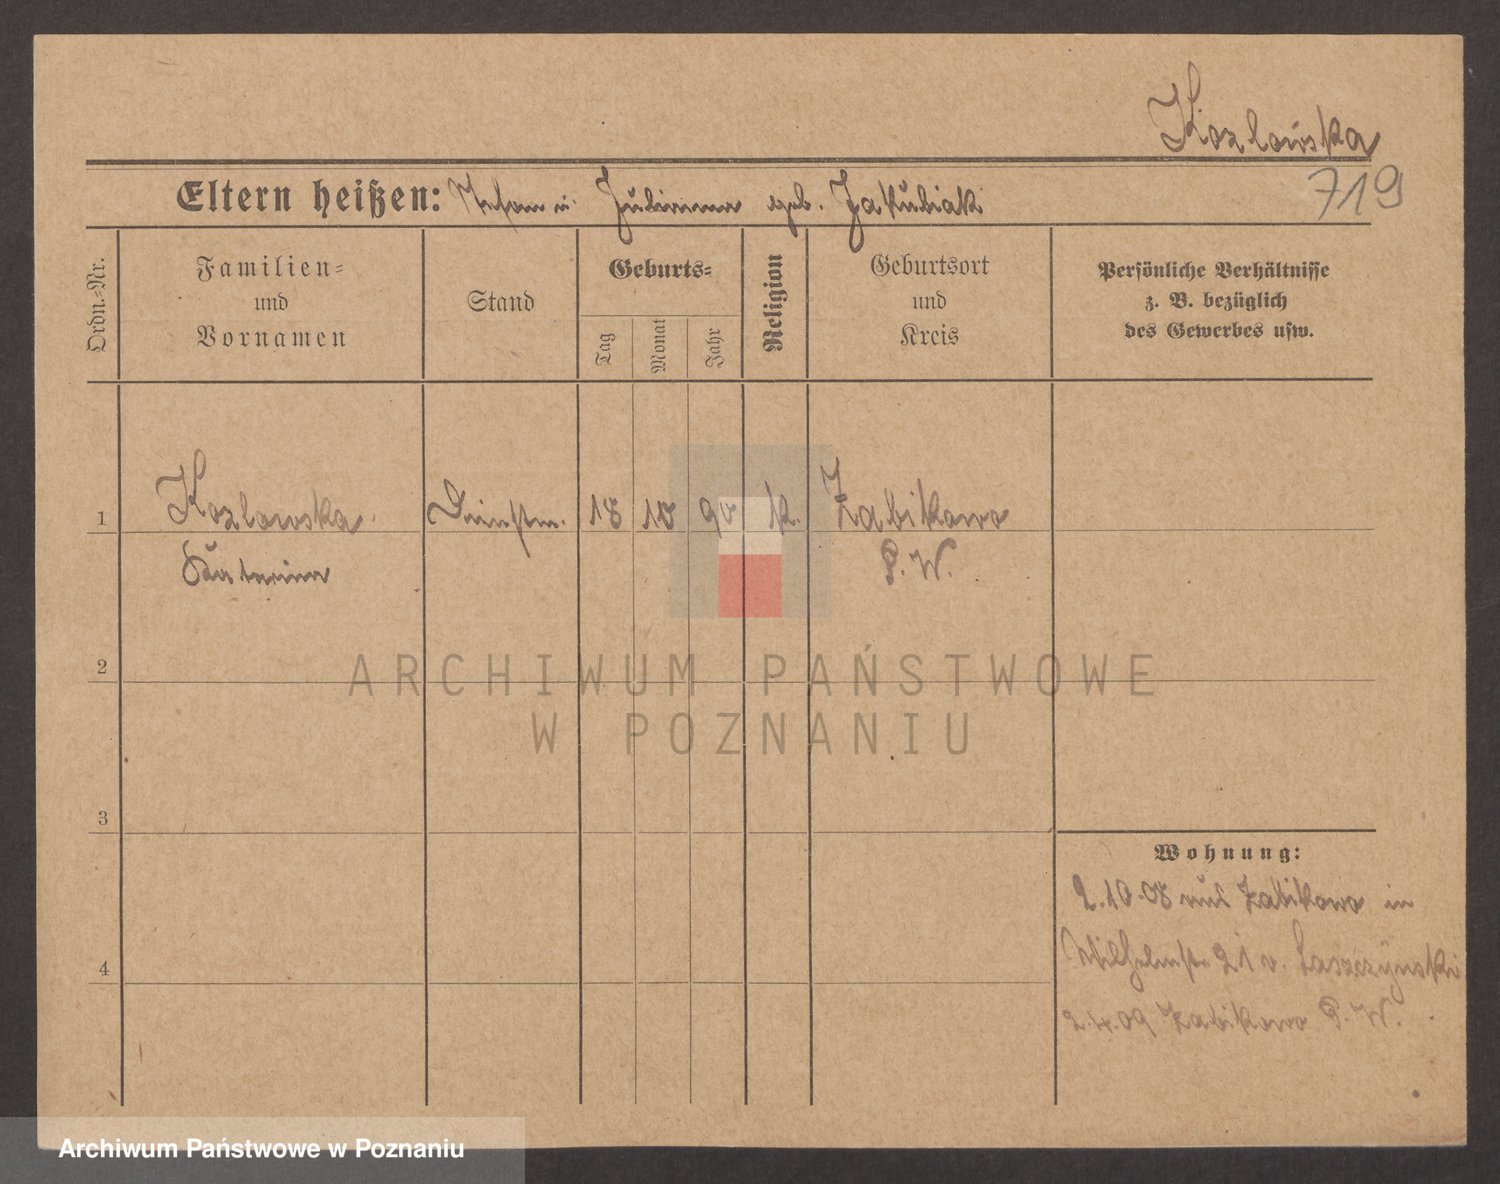 Kozlowska
719
Eltern heißen: Stefan u. Julianna geb. Jakubiak
Ordn.=Nr.
Familien=
und
Vornamen
Stand
Geburts=
Tag
Monat
Jahr
Religion
Geburtsort
und
Kreis
Persönliche Verhältnisse
z. B. bezüglich
des Gewerbes usw.
1
Kozlowska
Katarina
Dienstm.
18
10
90
k.
Zabikowo
P. W.
2
3
4
Wohnung:
2.10.08 aus Zabikowo in
Wilhelmstr 21 v. Laszczynski
2.4.09 Zabikowo P. W.
ARCHIWUM PAŃSTWOWE
W POZNANIU
Archiwum Państwowe w Poznaniu